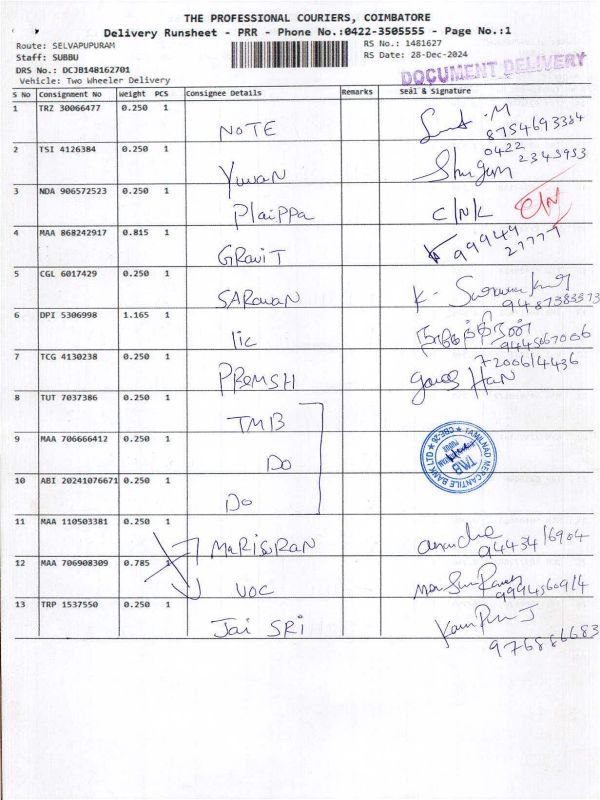 THE PROFESSIONAL COURIERS, COIMBATORE
Delivery Runsheet - PRR - Phone No.:0422-3505555 - Page No.:1
Route: SELVAPUPURAM
RS No.: 1481627
Staff: SUBBU
RS Date: 28-Dec-2024
DRS No.: DCJB148162701
DOCUMENT DELIVERY
Vehicle: Two Wheeler Delivery
S No Consignment No Weight PCS Consignee Details Remarks Seal & Signature
1 TRZ 30066477 0.250 1 NOTE
2 TSI 4126384 0.250 1 Yuwan 0422
3 NDA 906572523 0.250 1 Plaippa C/N/L
4 MAA 868242917 0.815 1 GRaviT 99944
5 CGL 6017429 0.250 1 SARawaN K-
6 DPI 5306998 1.165 1 lic 9445667006
7 TCG 4130238 0.250 1 PREMSH
8 TUT 7037386 0.250 1 TMB
9 MAA 706666412 0.250 1 Do
TAMILNAD MERCANTILE BANK LTD CBE-26 TMB
10 ABI 20241076671 0.250 1 Do
11 MAA 110503381 0.250 1
12 MAA 706908309 0.785 1 VOC
13 TRP 1537550 0.250 1 Jai SRI